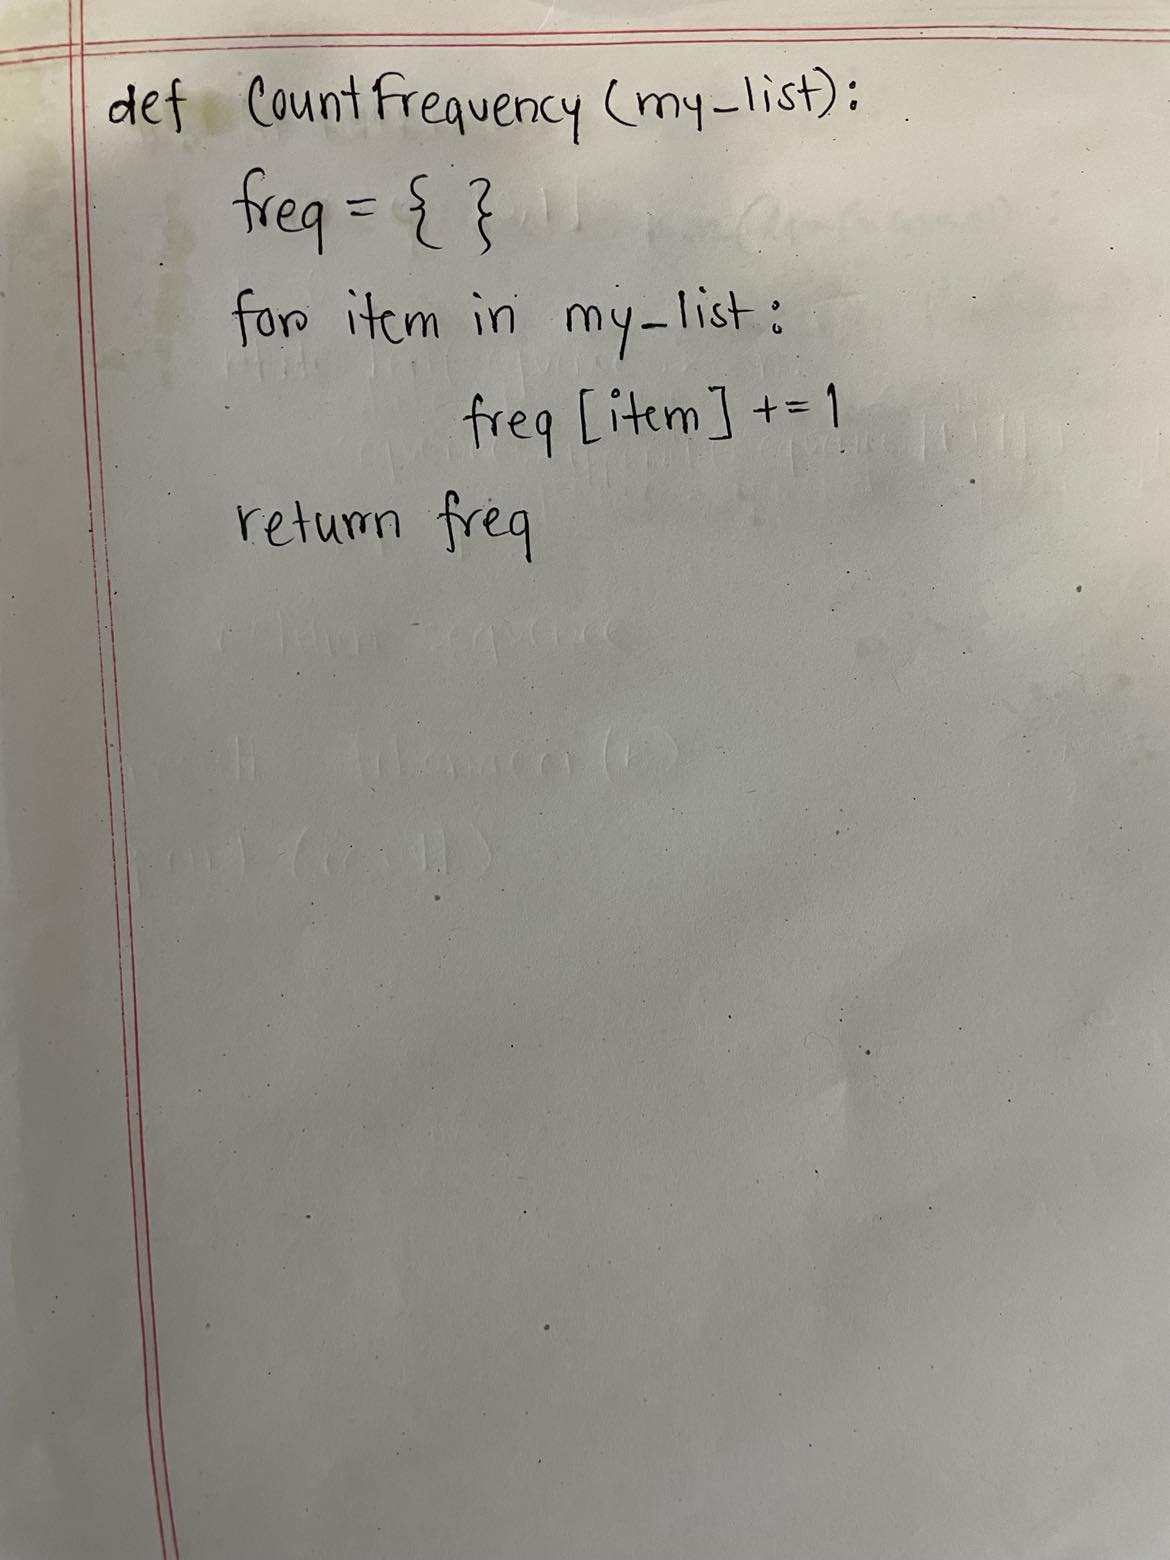 def CountFrequency (my_list):
freq = { }
for item in my_list:
freq [item] += 1
return freq